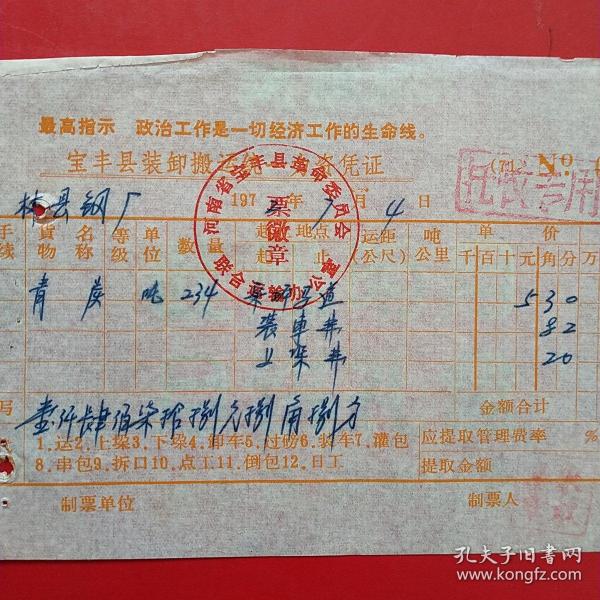 最高指示 政治工作是一切经济工作的生命线。
宝丰县装卸搬运 资凭证
(71) №
林县钢厂
197 年7月4日
货物名称 等级 单位 数量 起 地点 止 运距(公尺) 吨公里 单价 千百十元角分 万
河南省宝丰县革命委员会
票徽章
联合运输办公室
青炭 吨 234 5 3 0
装车 8 2
上垛 2 0
写 壹仟肆佰柒拾捌元捌角捌分 金额合计
1.运2.上垛3.下垛4.卸车5.过磅6.装车7.灌包 应提取管理费率 %
8.串包9.拆口10.点工11.倒包12.日工 提取金额
制票单位 制票人
孔夫子旧书网
www.kongfz.com